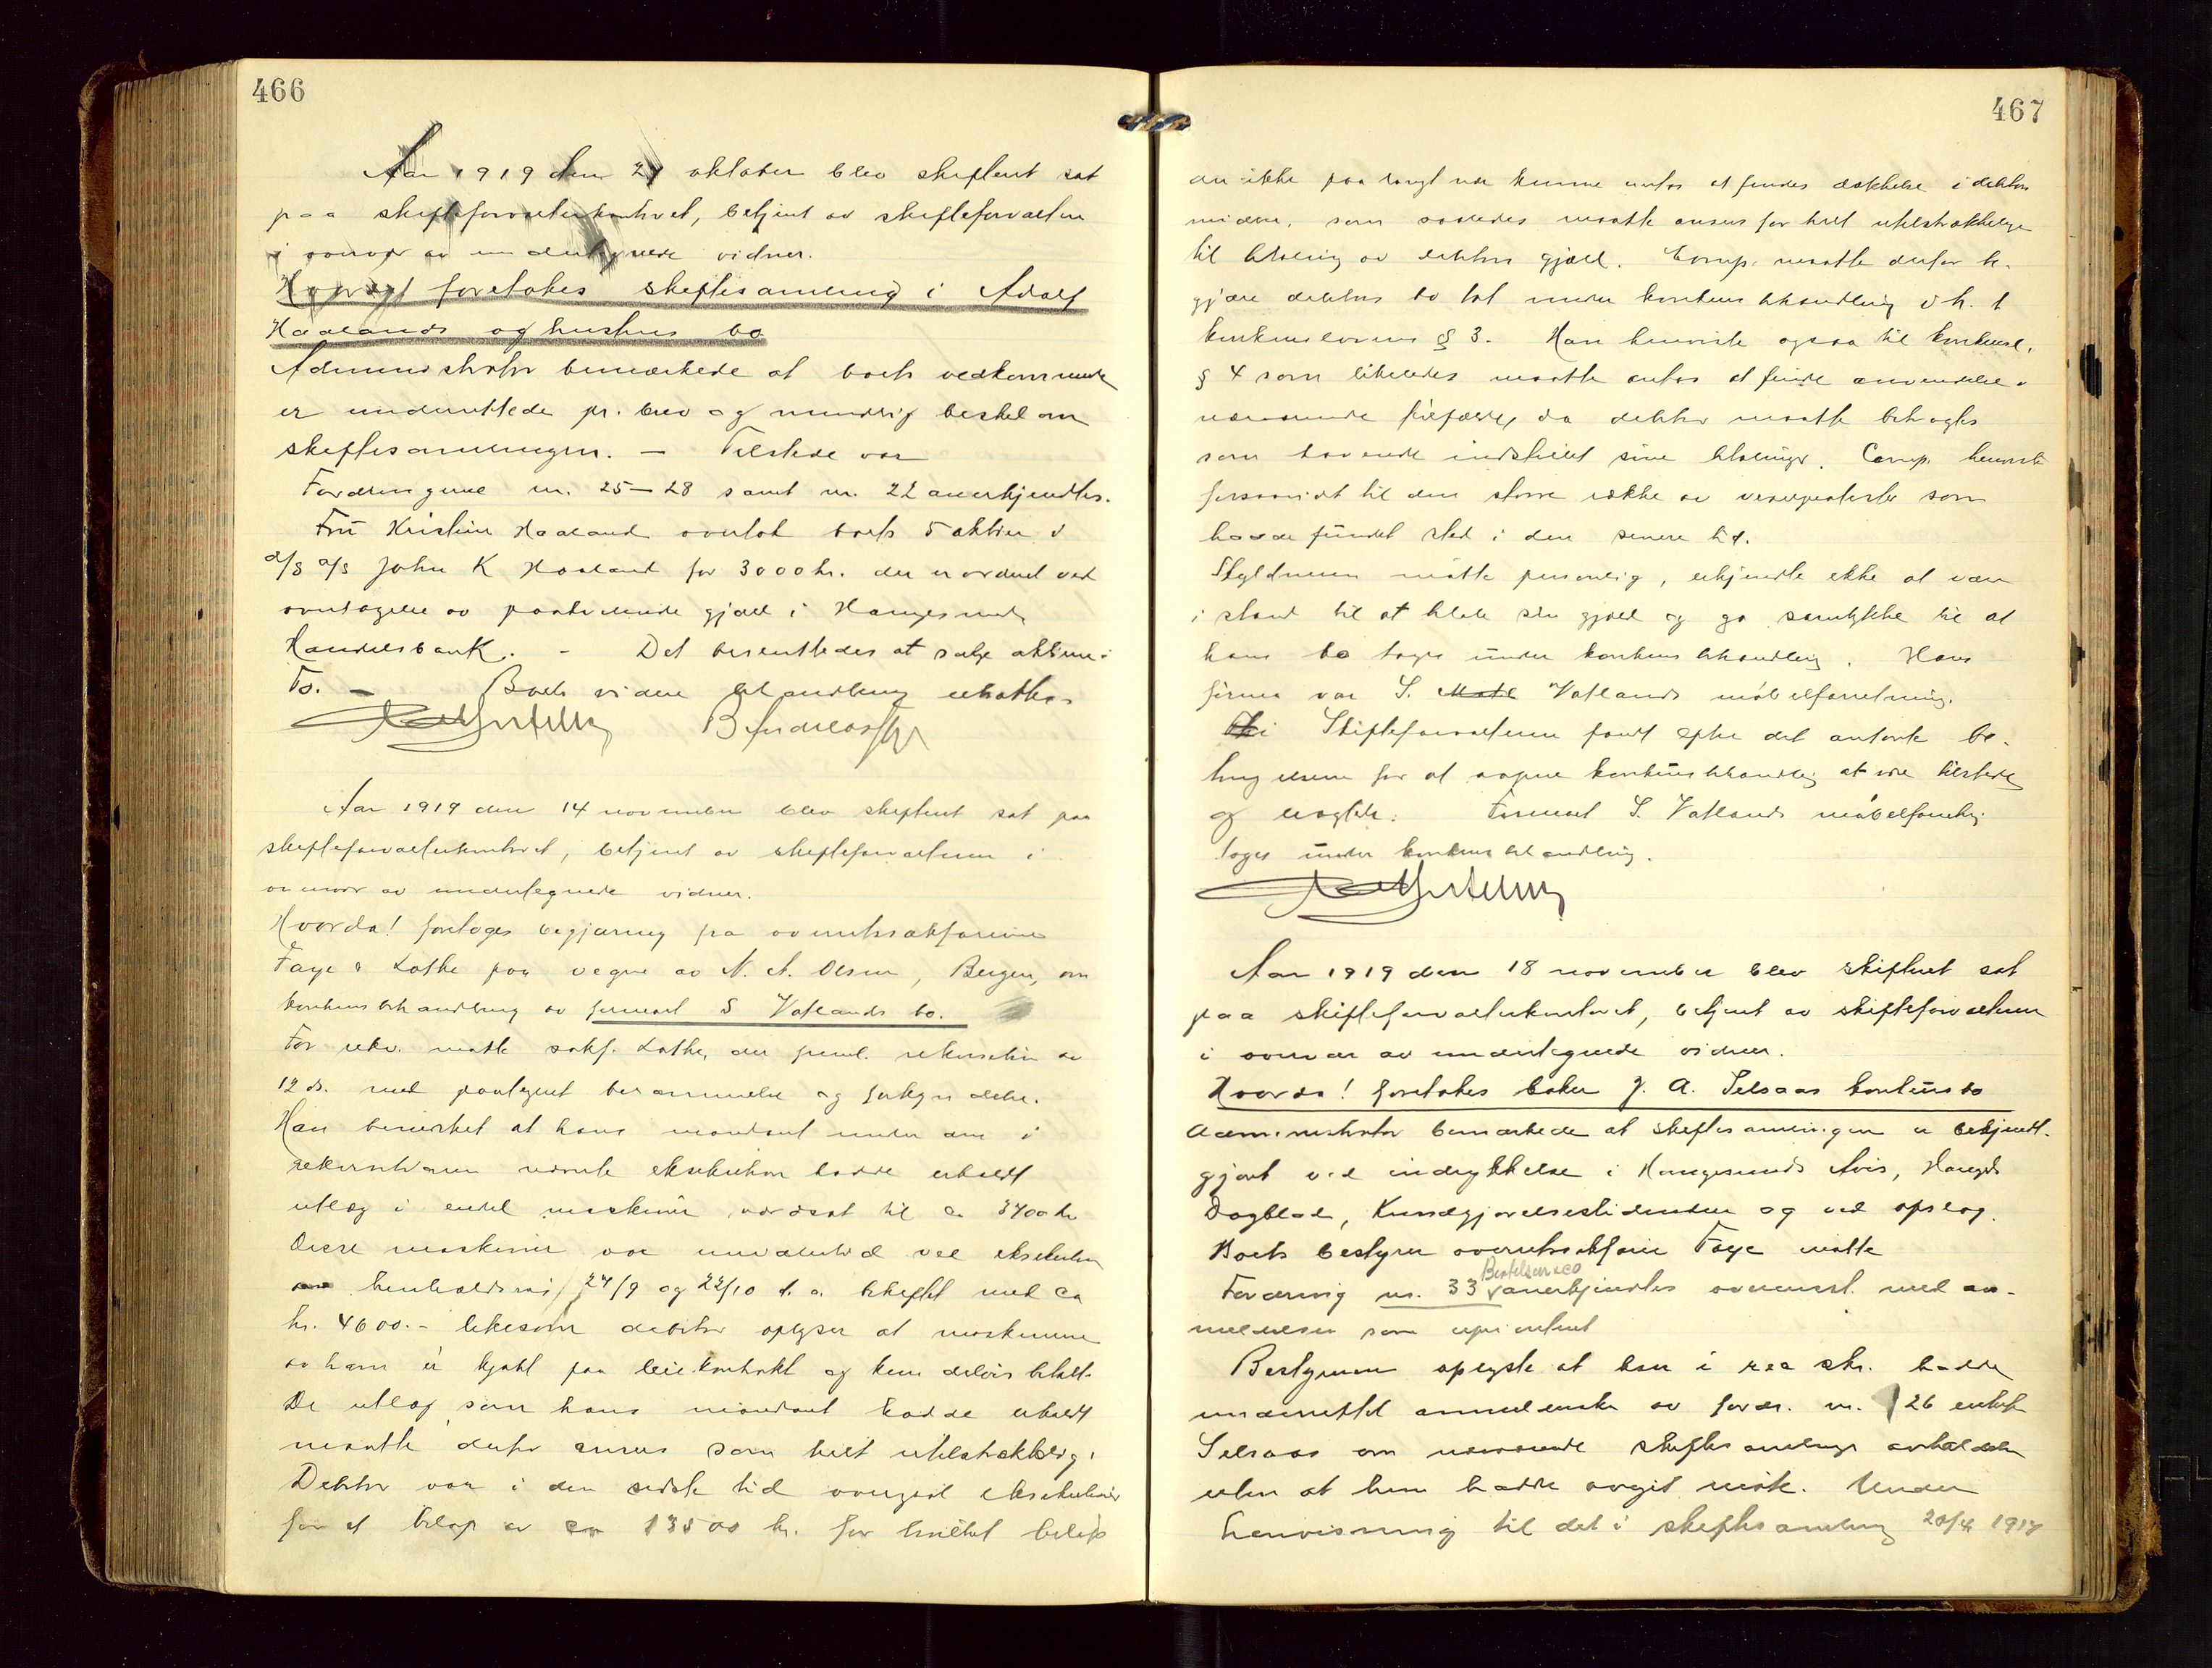 466
Aar 1919 den 27 oktober blev skifteret sat
paa skifteforvalterkontoret, betjent av skifteforvalteren
i overvær av undertegnede vidner.
Hvorda! foretokes skiftesamling i Adolf
Haalands og hustrus bo
Administrator bemærkede at boets vedkommende
er underrettede pr. brev og mundtlig besked om
skiftesamlingen. — Tilstede var
Fordringene nr. 25–28 samt nr. 22 anerkjendtes.
Fru Kristine Haaland overtok boets 5 aktier i
a/s a/s John K Haaland for 3000 kr. der er ordnet ved
overtagelse av paahvilende gjæld i Haugesunds
Handelsbank. - Det besluttedes at sælge aktiene i
To. — Boets videre behandling utsattes
B Andreassen
Aar 1919 den 14 november blev skifteret sat paa
skifteforvalterkontoret, betjent av skifteforvalteren i
overvær av undertegnede vidner.
Hvorda! foretoges begjæring fra overretssakførerne
Faye & Lothe paa vegne av N. A. Olsen, Bergen, om
konkursbehandling av firmaet S Vatlands bo.
For rekv. møtte sakf. Lothe, der freml. rekvisition av
12 ds. med paategnet berammelse og forkyndelse.
Han bemerket at hans mandant under den i
rekvisitionen nævnte eksekution hadde erholdt
utlæg i endel maskiner værdsat til ca 3400 kr
Disse maskiner var imidlertid ved eksekution
henholdsvis 24/9 og 22/10 d. a. beheftet med ca
kr. 4600.- likesom debitor oplyser at maskinene
av ham er kjøpt paa leiekontrakt og kun delvis betalt.
De utlæg som hans mandant hadde erholdt
maatte derfor ansees som helt utilstrækkelig.
Debitor var i den sidste tid overgaat eksekutioner
for et beløp av ca 13500 kr. for hvilket beløp
467
der ikke paa langt nær kunne antas at findes dækkelse i debitors
midler, som saaledes maatte ansees for helt utilstrækkelige
til betaling av debitors gjæld. Comp. maatte derfor be-
gjære debitors bo tat under konkursbehandling i h. t
konkurslovens § 3. Han henviste ogsaa til konkursl.
§ 4 som likeledes maatte antas at finde anvendelse i
nærværende tilfælde, da debitor maatte betragtes
som havende indstillet sine betalinger. Comp. henviste
forsaavidt til den større række av vexelprotester som
havde fundet sted i den senere tid.
Skyldneren møtte personlig, erkjendte ikke at være
i stand til at betale sin gjæld og ga samtykke til at
hans bo toges under konkursbehandling. Hans
firma var S. Vatlands møbelforretning.
Skifteforvalteren fandt efter det anførte be-
tingelsene for at aapne konkursbehandling at være tilstede
og eragtede: Firmaet S. Vatlands møbelforretning
toges under konkursbehandling.
Aar 1919 den 18 november blev skifteret sat
paa skifteforvalterkontoret, betjent av skifteforvalteren
i overvær av undertegnede vidner.
Hvorda! foretokes baker J. A. Selsaas konkursbo
Administrator bemærkede at skiftesamlingen er bekjendt-
gjort ved indrykkelse i Haugesunds Avis, Haugds
Dagblad, Kundgjørelsestidenden og ved opslag.
Boets bestyrer overretssakfører Faye møtte
Bertelsen & Co
Fordring nr. 33 anerkjendtes overensst. med an-
meldelsen som uprioritert
Bestyreren oplyste at han i rec skr. hadde
underrettet anmelderen av fordr. nr. 26 enkefru
Selsaas om nærværende skiftesamlings avholdelse
uten at hun hadde avgit møte. Under
henvisning til det i skiftesamling 20/4 1917